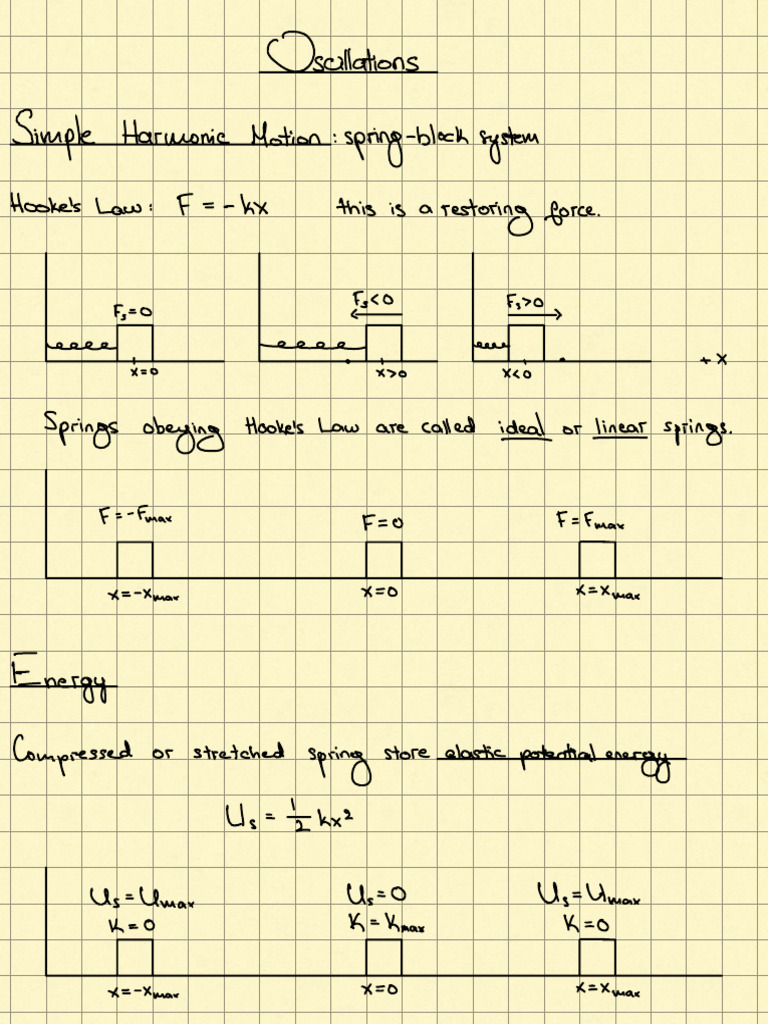 Oscillations
Simple Harmonic Motion: spring-block system
Hooke's Law: F = -kx this is a restoring force.
Fs=0 Fs<0 Fs>0
x=0 x>0 x<0 + x
Springs obeying Hooke's Law are called ideal or linear springs.
F=-Fmax F=0 F=Fmax
x=-xmax x=0 x=xmax
Energy
Compressed or stretched spring store elastic potential energy
Us = 1/2 kx²
Us=Umax Us=0 Us=Umax
K=0 K=Kmax K=0
x=-xmax x=0 x=xmax